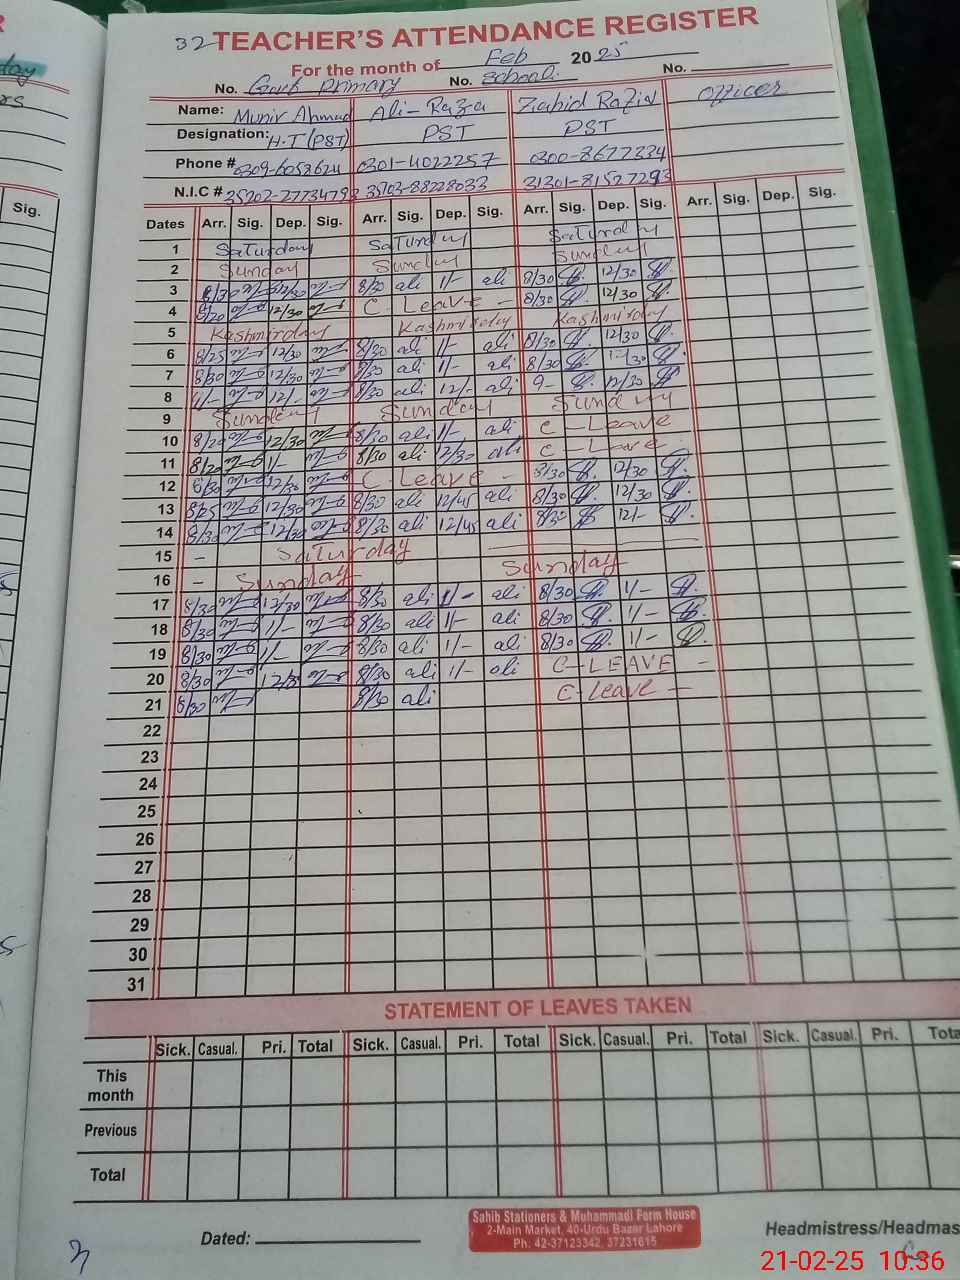 32 TEACHER'S ATTENDANCE REGISTER
For the month of Feb 2025
No. Govt Primary No. School. No.
Name: Munir Ahmad Ali-Raza Zahid Raziq Officer
Designation: H.T (PST) PST PST
Phone # 0309-6058624 0301-4022257 0300-8677334
N.I.C # 35202-2773479 35103-88228033 31301-81527293
Sig.
Dates Arr. Sig. Dep. Sig. Arr. Sig. Dep. Sig. Arr. Sig. Dep. Sig. Arr. Sig. Dep. Sig.
1 Saturday Saturday Saturday
2 Sunday Sunday Sunday
3 8/30 12/30 8/30 ali 1/- ali 8/30 12/30
4 8/20 12/30 C-Leave - 8/30 12/30
5 Kashmirday Kashmirday Kashmirday
6 8/25 12/30 8/30 ali 1/- ali 8/30 12/30
7 8/30 12/30 8/30 ali 1/- ali 8/30 12/30
8 12/- 8/30 ali 12/- ali 9- 12/30
9 Sunday Sunday Sunday
10 8/20 12/30 8/30 ali 1/- ali C-Leave
11 8/20 1/- 8/30 ali 12/30 ali C-Leave
12 8/30 12/30 C-Leave - 8/30 12/30
13 8/25 12/30 8/30 ali 12/45 ali 8/30 12/30
14 8/30 12/30 8/30 ali 12/45 ali 8/30 12/-
15 - Saturday
16 - Sunday Sunday
17 8/30 12/30 8/30 ali 1/- ali 8/30 1/-
18 8/30 1/- 8/30 ali 1/- ali 8/30 1/-
19 8/30 1/- 8/30 ali 1/- ali 8/30 1/-
20 8/30 12/30 8/30 ali 1/- ali C-LEAVE -
21 8/30 8/30 ali C-Leave -
22
23
24
25
26
27
28
29
30
31
STATEMENT OF LEAVES TAKEN
Sick. Casual. Pri. Total Sick. Casual. Pri. Total Sick. Casual. Pri. Total Sick. Casual. Pri. Tota
This month
Previous
Total
Dated:
Sahib Stationers & Muhammadi Form House
2-Main Market, 40-Urdu Bazar Lahore
Ph: 42-37123342, 37231615
Headmistress/Headmas
21-02-25 10:36